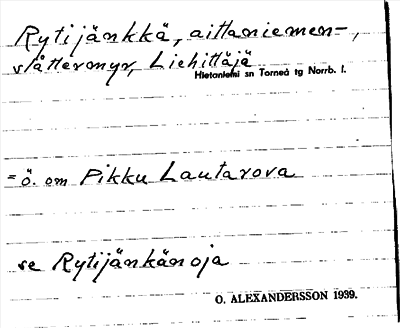 Rytijänkkä, aittaniemen-,
slåttermyr, Liehittäjä
Hietaniemi sn Torneå tg Norrb. l.
= ö. om Pikku Lautarova
se Rytijänkänoja
O. ALEXANDERSSON 1939.